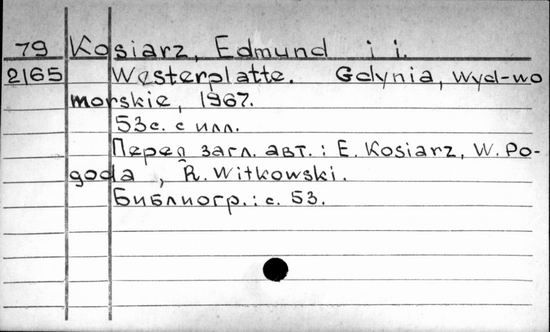 79 Kosiarz, Edmund i i.
2165 Westerplatte. Gdynia, Wyd-wo
morskie, 1967.
53с. с илл.
Перед загл. авт.: E. Kosiarz, W. Po-
goda, R. Witkowski.
Библиогр.: с. 53.